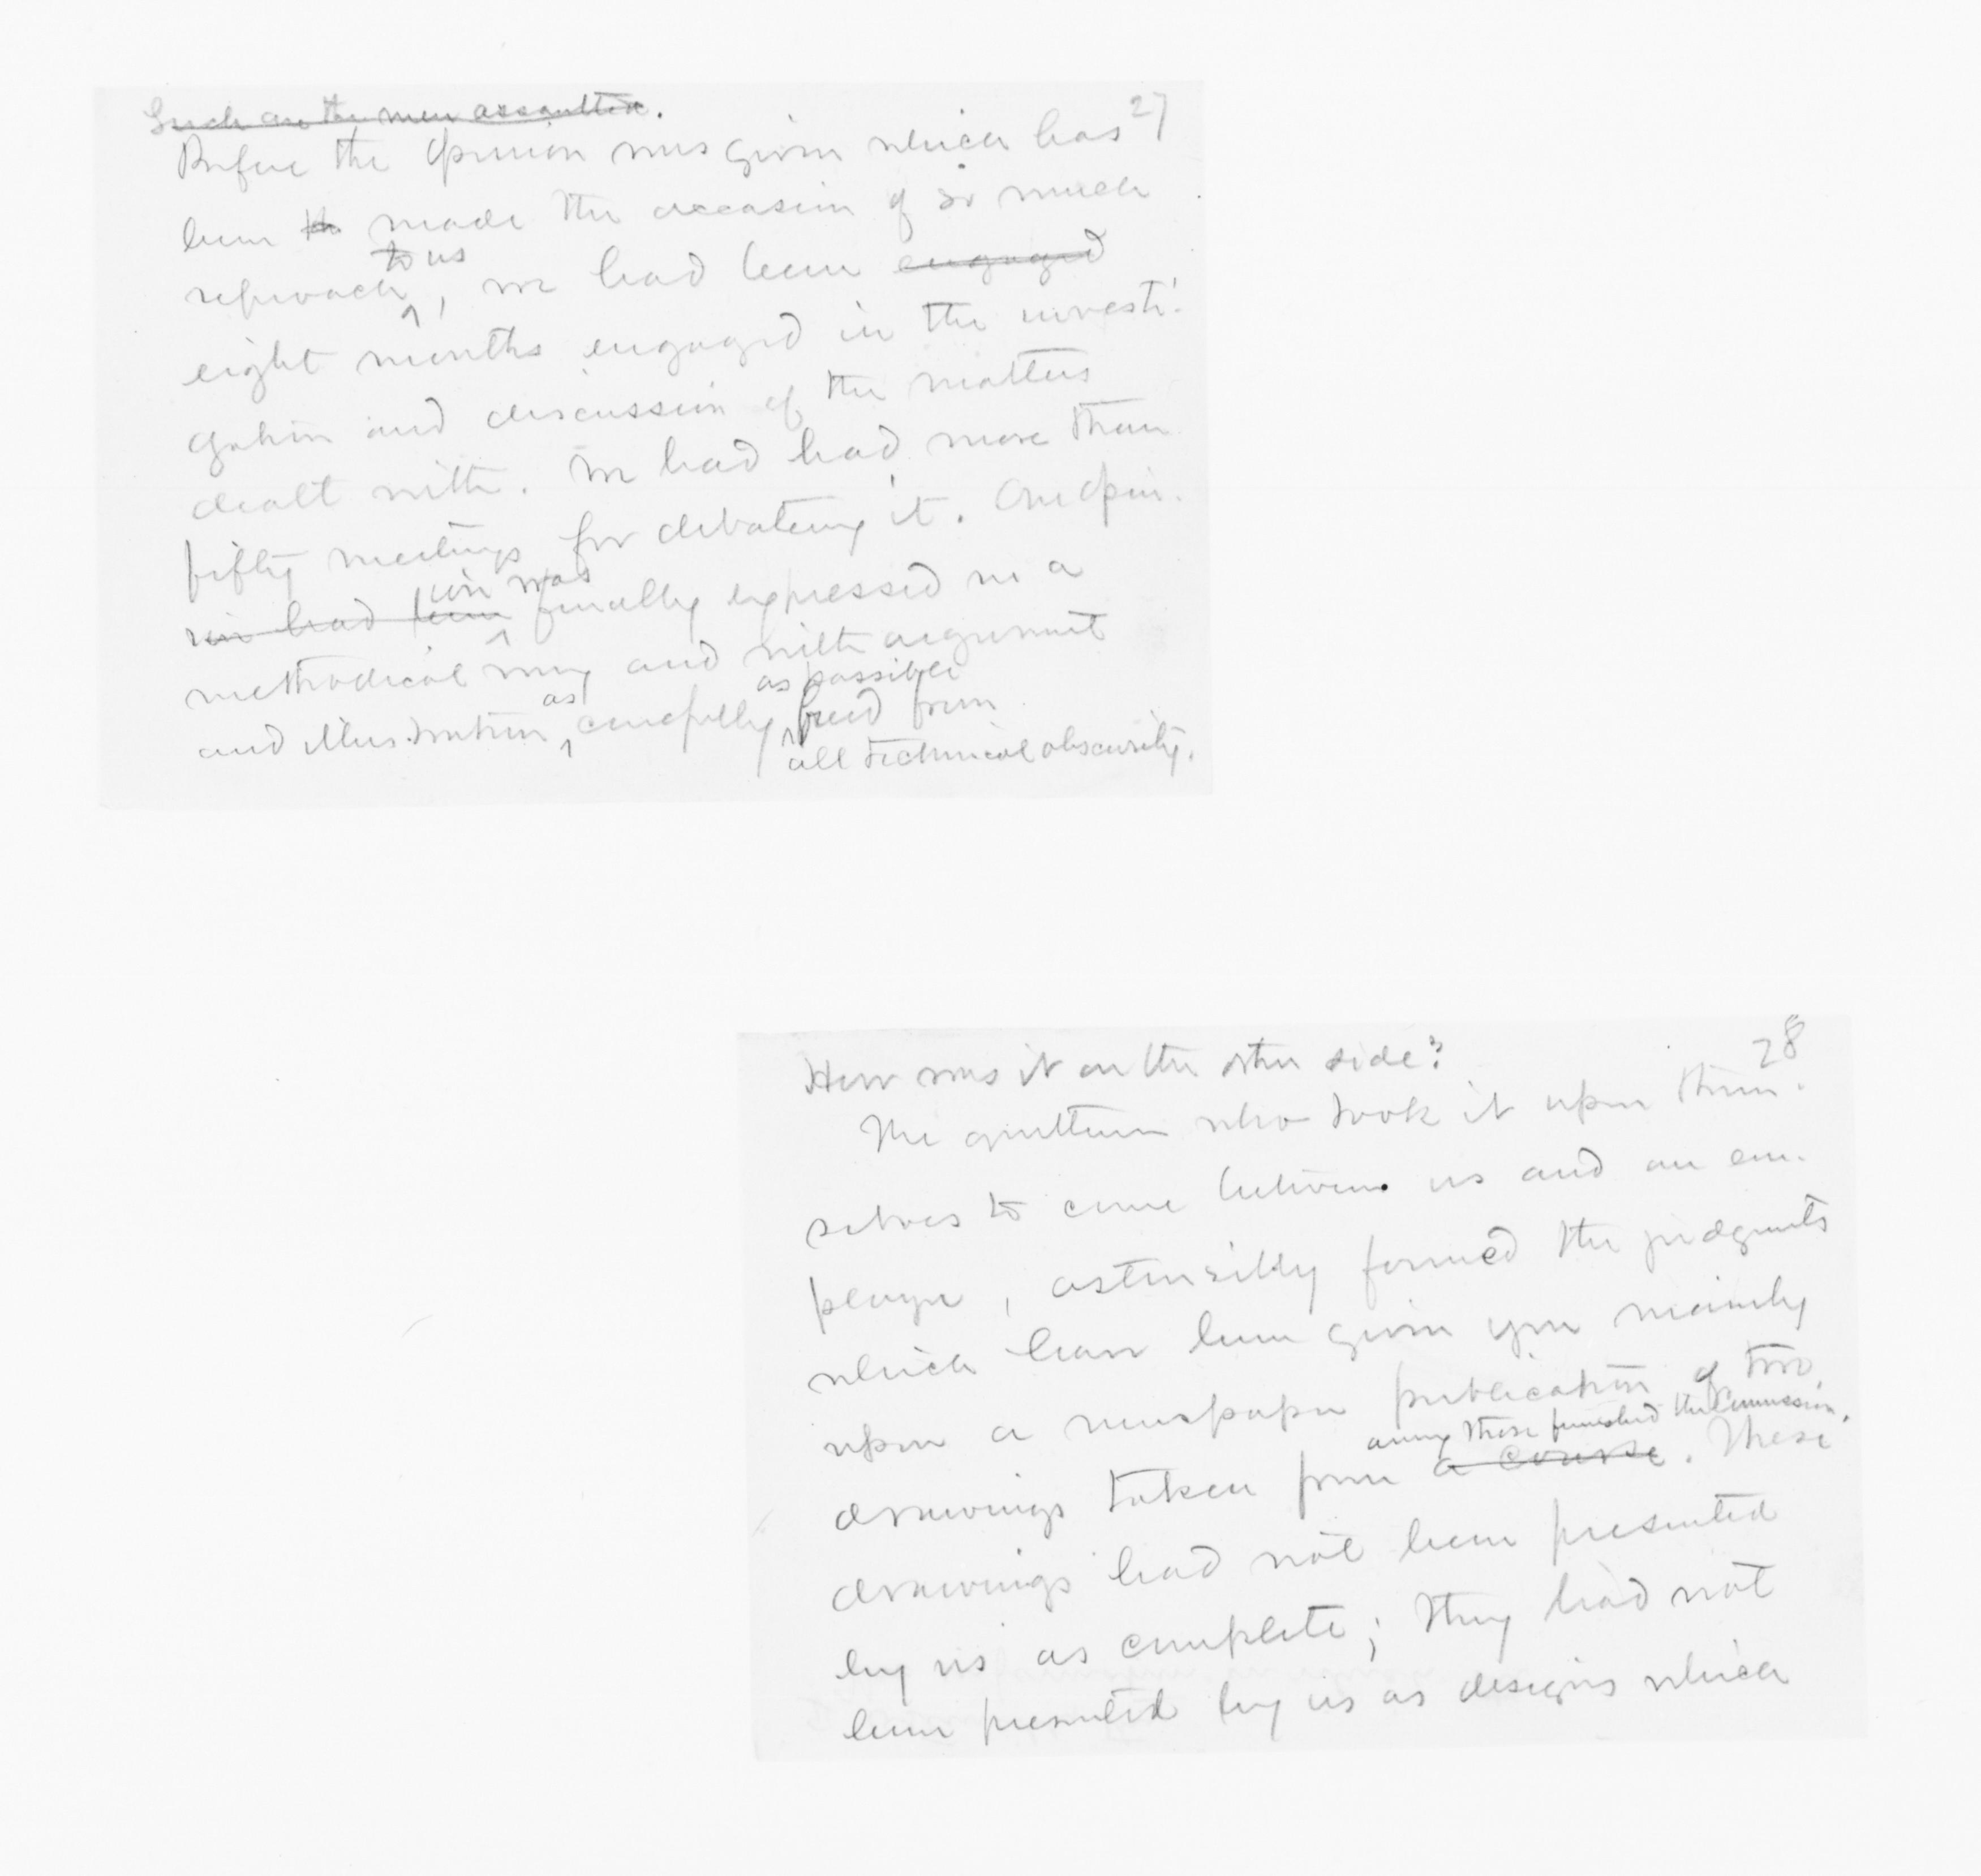 27
Such are the men assaulted.
Before the opinion was given which has
been to made the occasion of so much
reproach to us, we had been engaged
eight months engaged in the investi-
gation and discussion of the matters
dealt with. We had had more than
fifty meetings for debating it. One opin-
ion had been ion was finally expressed in a
methodical way and with argument
and illustration as carefully as possible freed from
all technical obscurity.
28
How was it on the other side?
The gentlemen who took it upon them-
selves to come between us and an em-
ployer, ostensibly formed the judgments
which have been given you mainly
upon a newspaper publication of two
drawings taken from a course among those furnished the Commission. These
drawings had not been presented
by us as complete; they had not
been presented by us as designs which